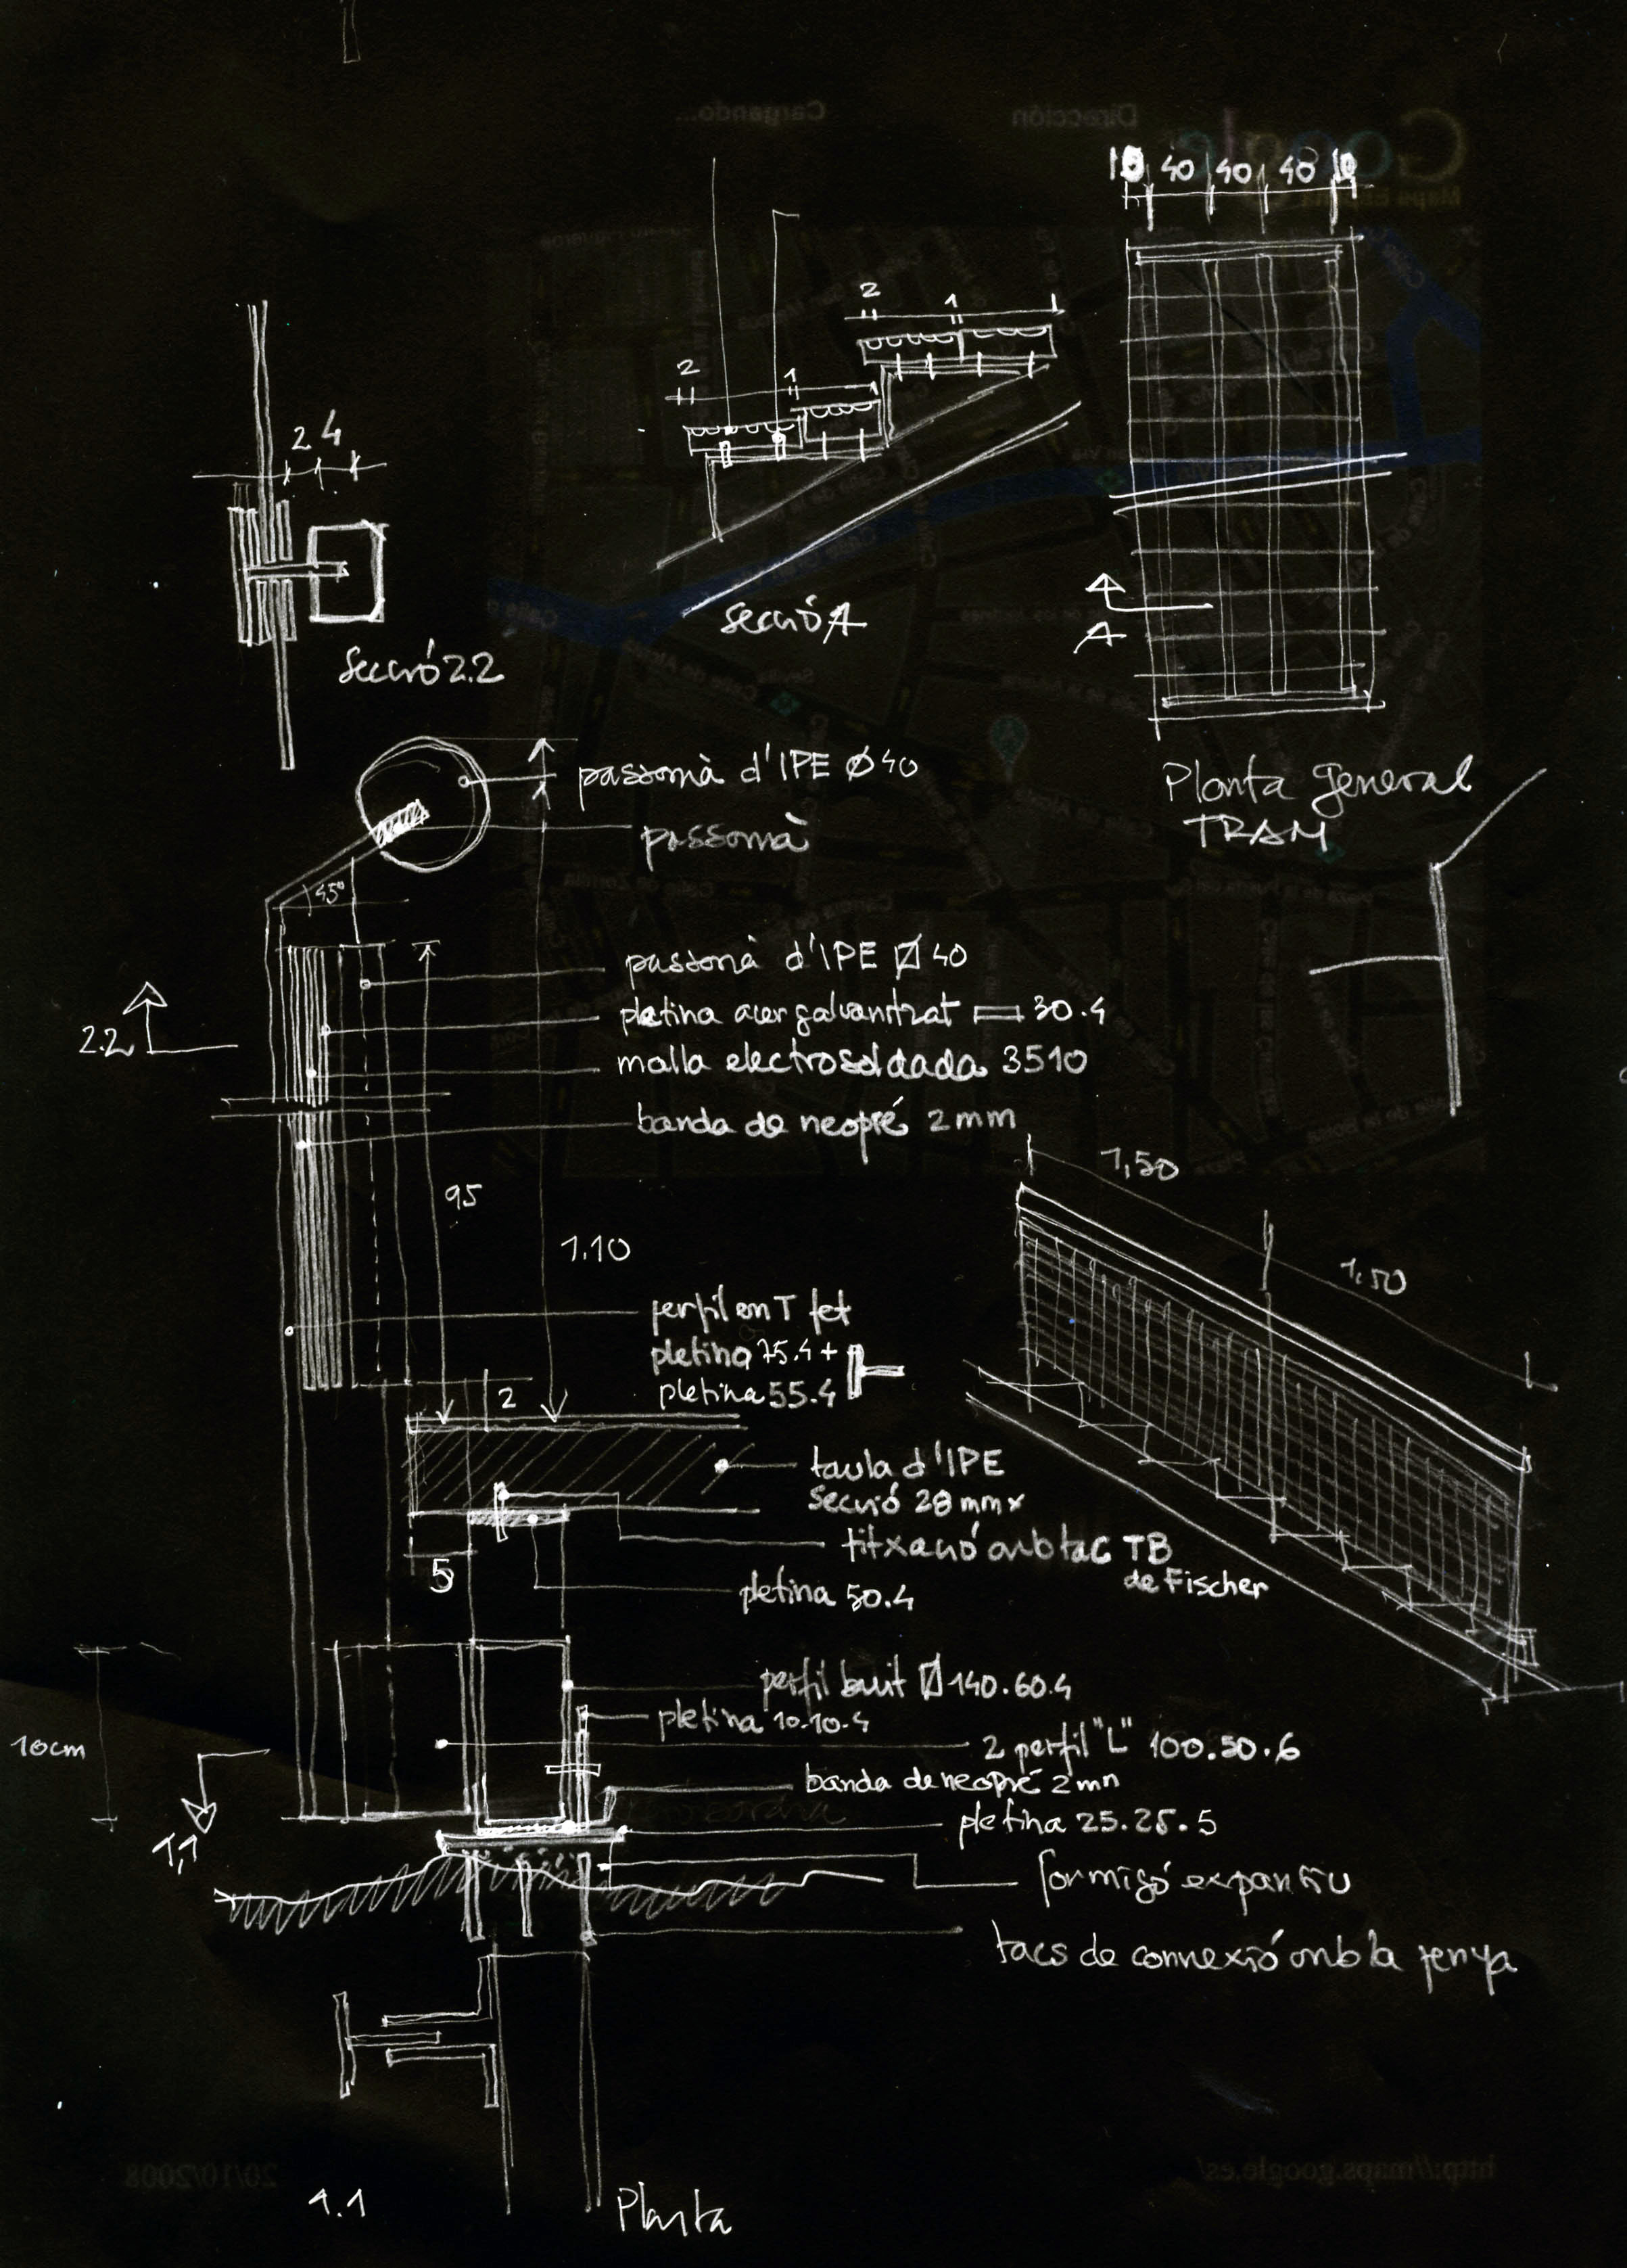 10 40 40 40 10
2
1
2
1
2 4
secció A
A
secció 2.2
Planta general
TRAM
passamà d'IPE Ø 40
passamà
45°
passamà d'IPE Ø 40
pletina acer galvanitzat 30.4
2.2
malla electrosoldada 3510
banda de neopré 2mm
1,50
95
1.10
1,50
perfil em T fet
pletina 75.4 +
pletina 55.4
2
taula d'IPE
secció 28 mm x
fitxació amb tac TB
de Fischer
5
pletina 50.4
perfil buit 140.60.4
pletina 10.10.4
10cm
2 perfil "L" 100.50.6
banda de neopré 2mm
pletina 25.25.5
1,1
formigó expansiu
tacs de connexió amb la penya
1.1
Planta
Google
Dirección
Cargando...
20/10/2008
http://maps.google.es/